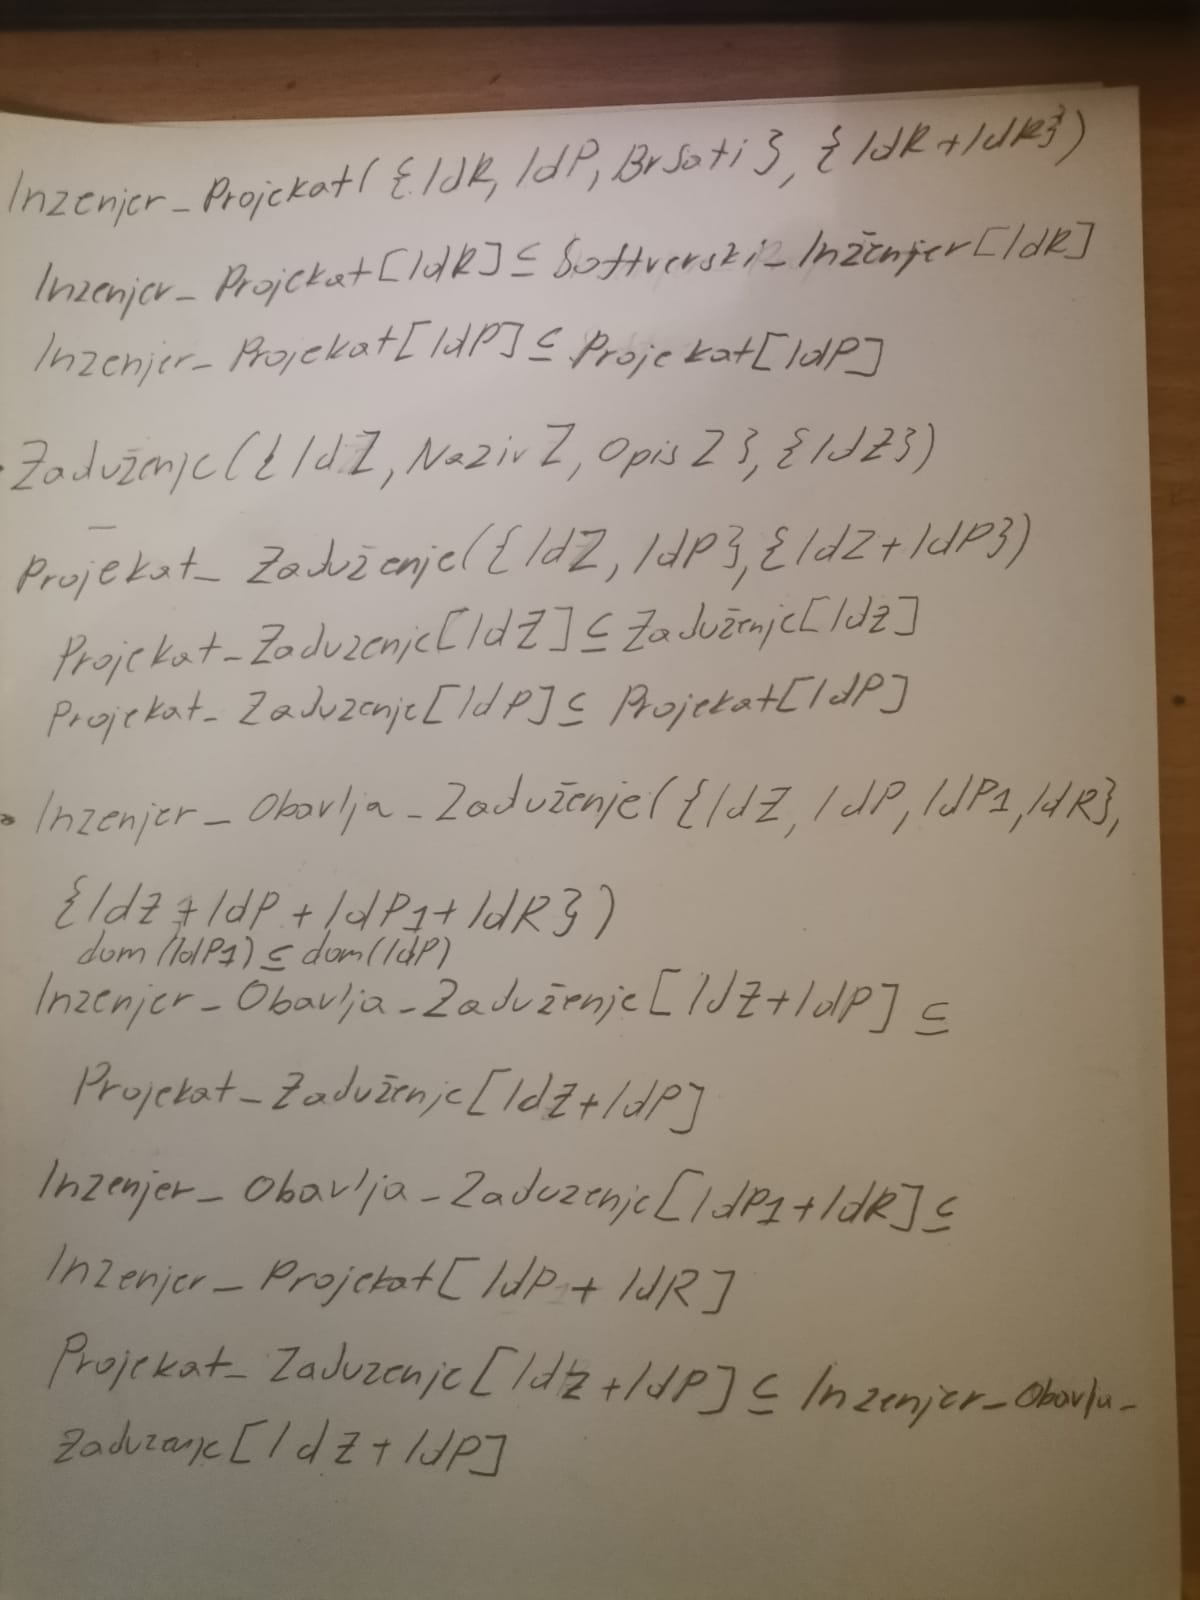 Inzenjer_Projekat({IdR, IdP, BrSati}, {IdR+IdR})
Inzenjer_Projekat[IdR] ⊆ Softverski_Inženjer[IdR]
Inzenjer_Projekat[IdP] ⊆ Projekat[IdP]
• Zaduženje({IdZ, NazivZ, OpisZ}, {IdZ})
Projekat_Zaduženje({IdZ, IdP}, {IdZ+IdP})
Projekat_Zaduzenje[IdZ] ⊆ Zaduženje[IdZ]
Projekat_Zaduzenje[IdP] ⊆ Projekat[IdP]
• Inzenjer_Obavlja_Zaduženje({IdZ, IdP, IdP1, IdR},
{IdZ+IdP+IdP1+IdR})
dom(IdP1) ⊆ dom(IdP)
Inzenjer_Obavlja_Zaduženje[IdZ+IdP] ⊆
Projekat_Zaduženje[IdZ+IdP]
Inzenjer_Obavlja_Zaduzenje[IdP1+IdR] ⊆
Inzenjer_Projekat[IdP+IdR]
Projekat_Zaduzenje[IdZ+IdP] ⊆ Inzenjer_Obavlja_
Zaduzenje[IdZ+IdP]